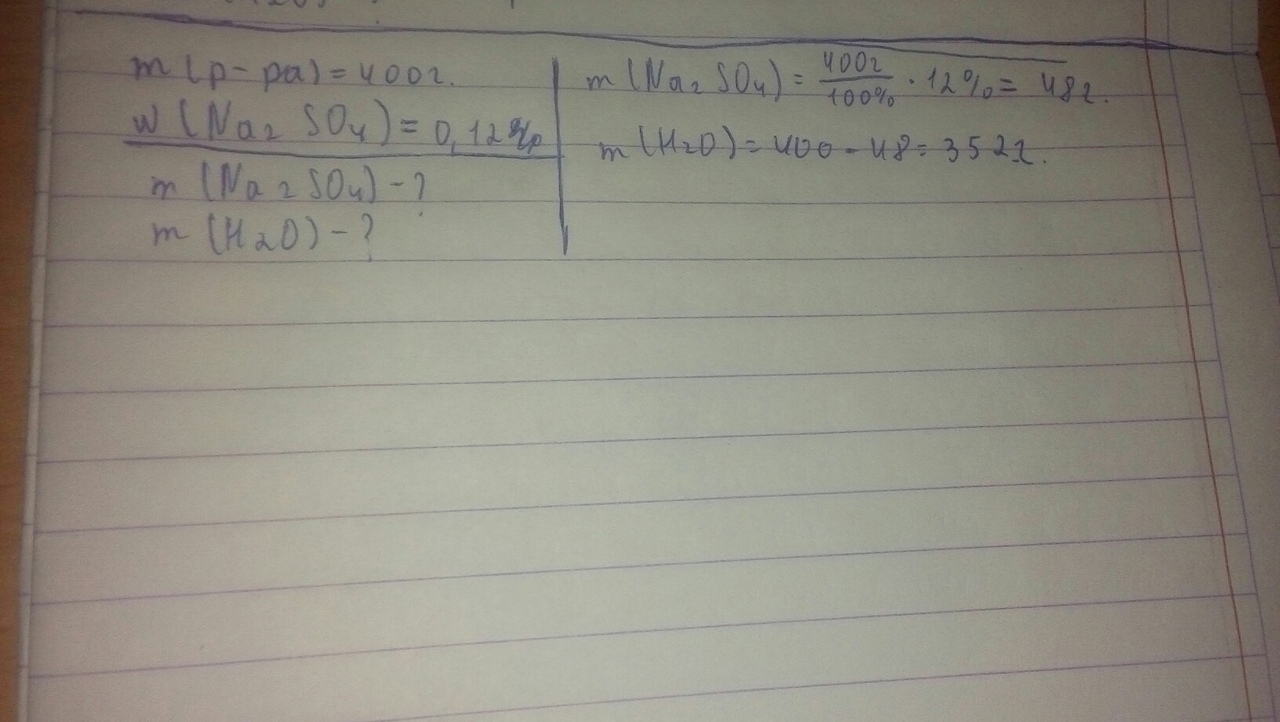 m (р-ра) = 400г.
w (Na2 SO4) = 0,12
m (Na2SO4) - ?
m (H2O) - ?
m (Na2 SO4) = 400г/100% · 12% = 48г.
m (H2O) = 400 - 48 = 352г.